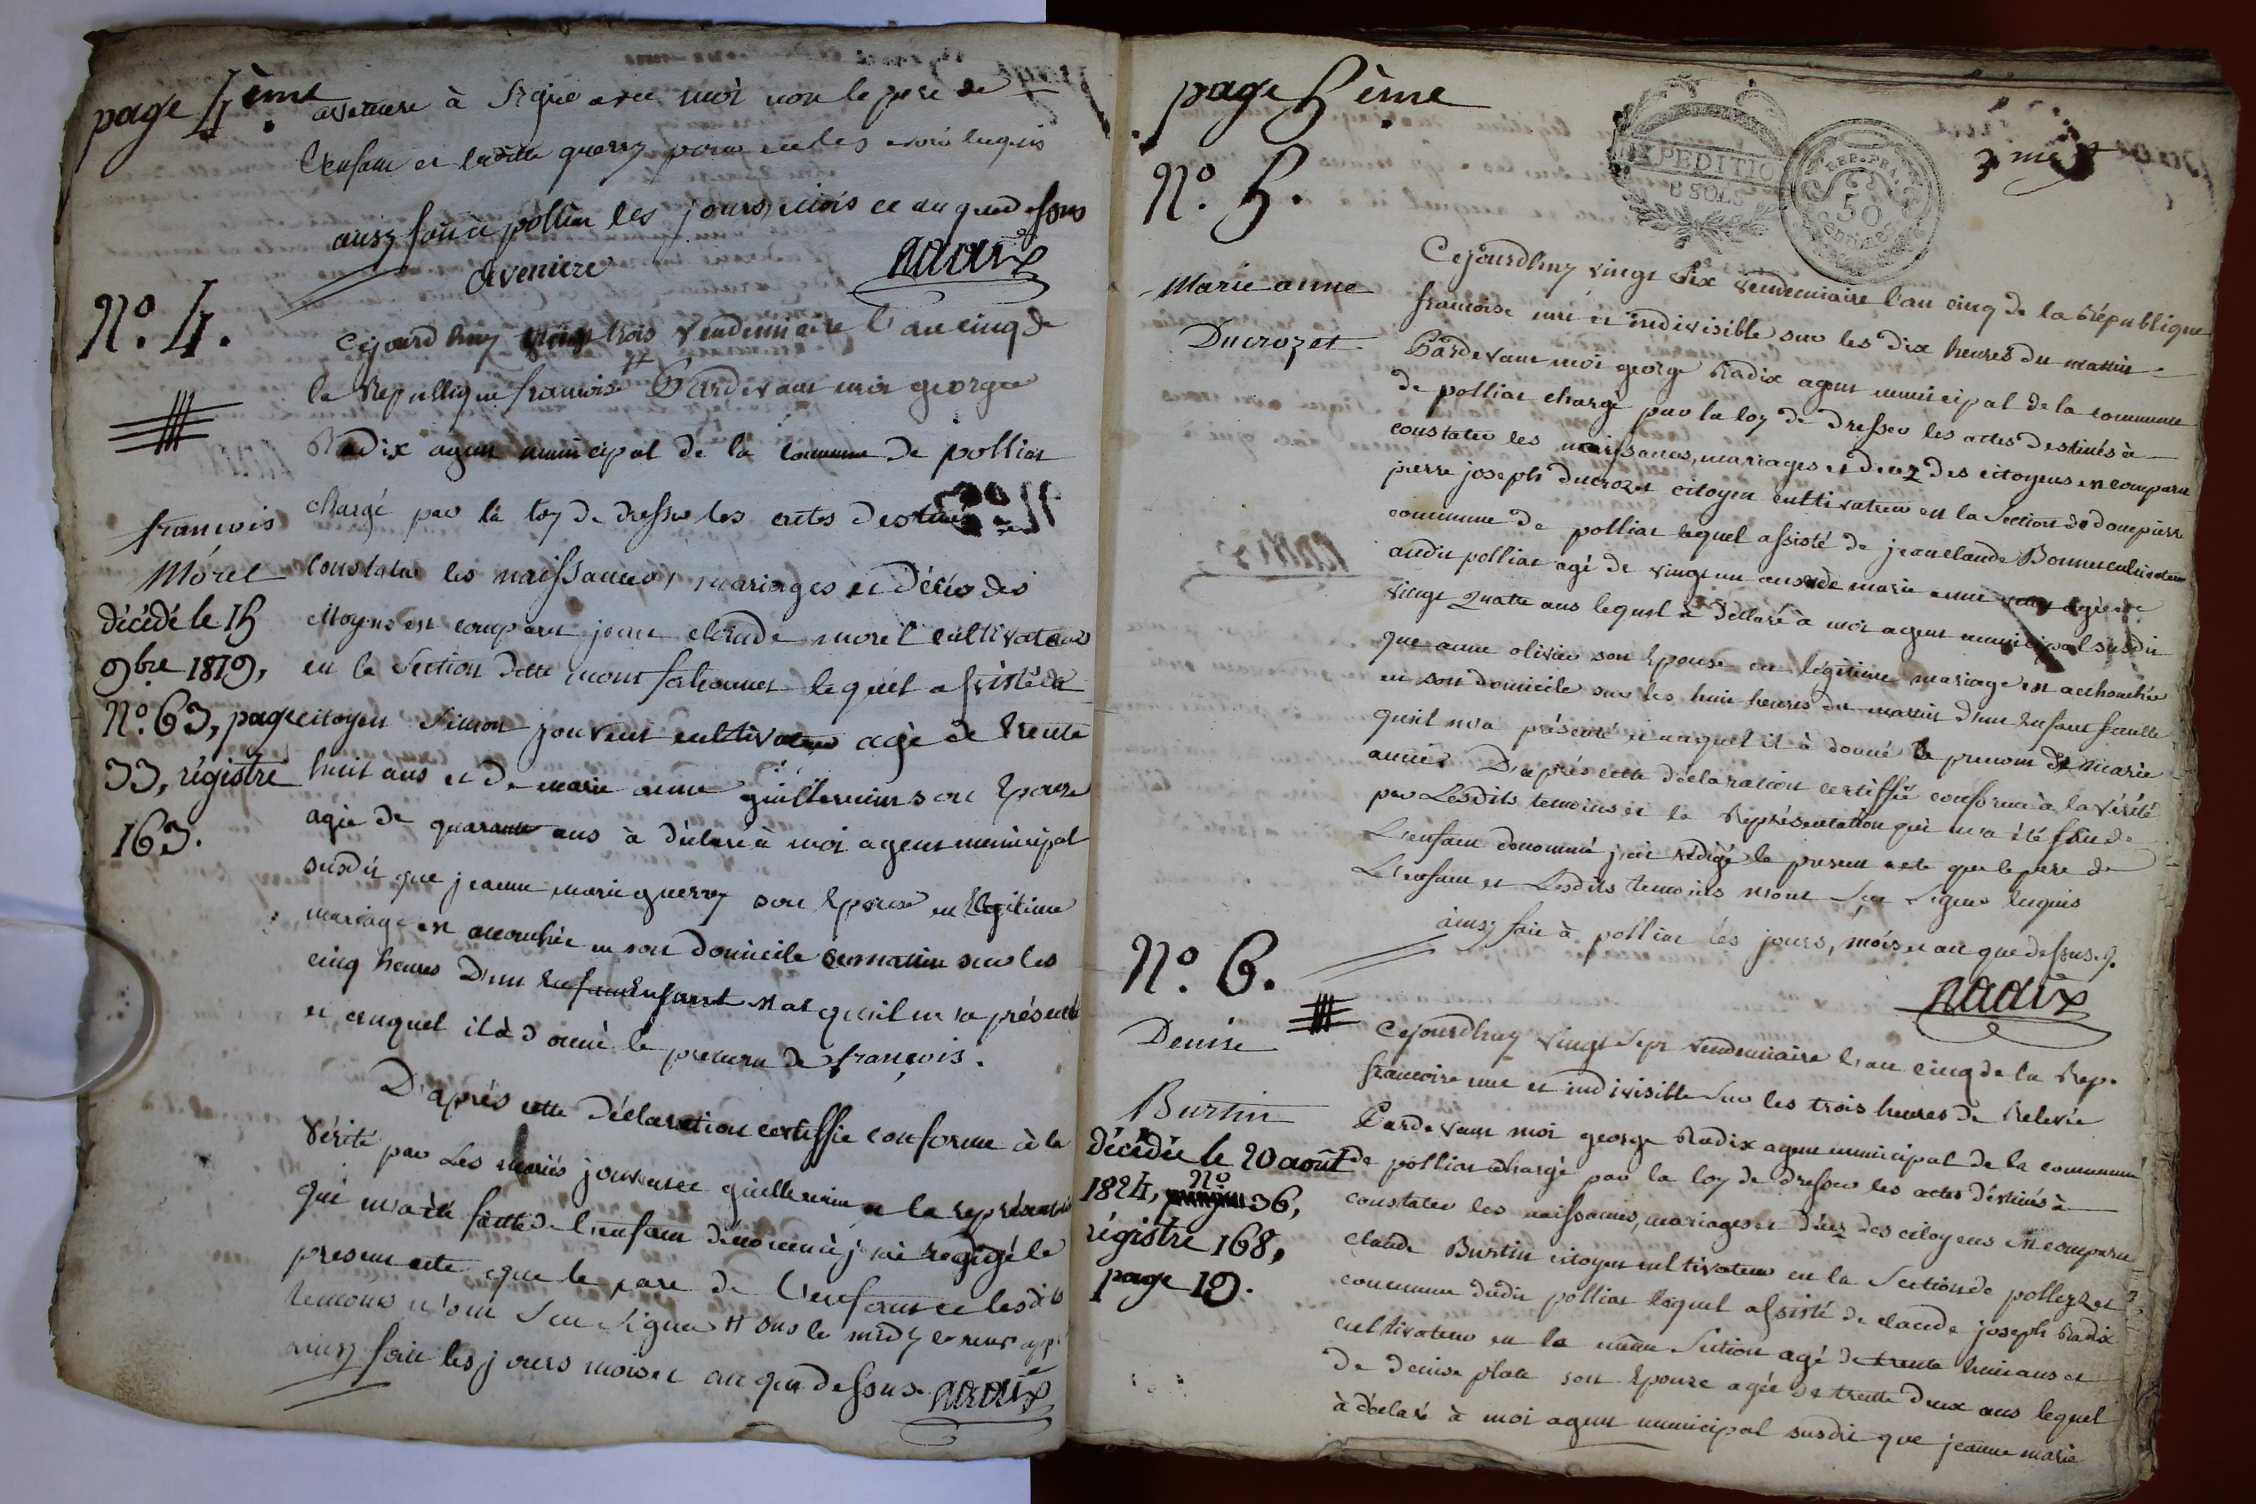 page 4ème
aveniere à Signé avec moi non le pere de
L'enfant et laditte guerry pour ne les avoir requis
ainsy fait à polliat les jours, mois et an que dessus
Aveniere Radix
N.° 4.
Cejourd'huy vingt trois vendemiaire l'an cinq de
la Republique francoise Pardevant moi george
Radix agent municipal de la commune de polliat
francois
Morel
décédé le 15
9bre 1819,
N.° 63, page
33, régistre
163.
chargé par la loy de dresser les actes destinés à
constater les naissances, mariages et décès des
citoyens est comparu jean claude morel cultivateur
en la Section dette mont falconnet lequel assisté du
citoyen Simon jouvent cultivateur agé de trente
huit ans et de marie anne guillermin son Epouse
agée de quarante ans à déclaré à moi agent municipal
susdit que jeanne marie guerry son Epouse en légitime
mariage est accouchée en son domicile ce matin sur les
cinq heures D'un Enfant Enfant mal qu'il m'a présenté
et auquel il à donné le prenom de françois.
D'aprés cette déclaration certiffié conforme à la
vérité par Les mariés jouvent et guillermin et la représentation
qui m'a été faitte de l'enfant dénommé j'ai redigé le
present acte que le pere de l'enfant et lesdits
temoins n'ont Seu Signer # sus le midy le mur app.
ainsy fait les jours mois et an que dessus Radix
page 5ème
N.° 5.
EXPEDITION
8 SOLS
REP. FRAN.
50
3 me
Marie anne
Ducrozet
Cejourdhuy vingt Six vendemiaire l'an cinq de la République
francoise une et indivisible sur les dix heures du matin
Pardevant moi george Radix agent municipal de la commune
de polliat chargé par la loy de dresser les actes destinés à
constater les naissances, mariages et decez des citoyens est comparu
pierre joseph Ducrozet citoyen cultivateur en la Section de dompierre
commune de polliat lequel assisté de jean claude Bonnet cultivateur
audit polliat agé de vingt un ans et de marie anne agée de
vingt quatre ans lequel à déclaré à moi agent municipal susdit
que anne olivier son Epouse en légitime mariage est accouchée
en son domicile sur les huit heures du matin d'un Enfant femelle
qu'il m'a présenté et auquel il à donné le prenom de marie
anne. D'aprés cette déclaration certiffié conforme à la vérité
par Lesdits temoins et la Représentation qui m'a été faite de
L'enfant dénommé j'ai rédigé le present acte que le pere de
L'enfant et Lesdits temoins n'ont Seu Signer requis
ainsy fait à polliat les jours, mois et an que dessus.
Radix
N.° 6.
Denise
Burtin
décédée le 20 août
1824, N.° 36,
régistre 168,
page 19.
Cejourdhuy vingt Sept vendemiaire l'an cinq de la Rep.
francoise une et indivisible Sur les trois heures de Relevée
Pardevant moi george Radix agent municipal de la commune
de polliat chargé par la loy de dresser les actes déstinés à
constater les naissances, mariages et décez des citoyens est comparu
claude Burtin citoyen cultivateur en la Section de polleyzet
commune dudit polliat lequel assisté de claude joseph Radix
cultivateur en la même Section agé de trente huit ans et
de denise plate son Epouse agée de trente deux ans lequel
à déclaré à moi agent municipal susdit que jeanne marie